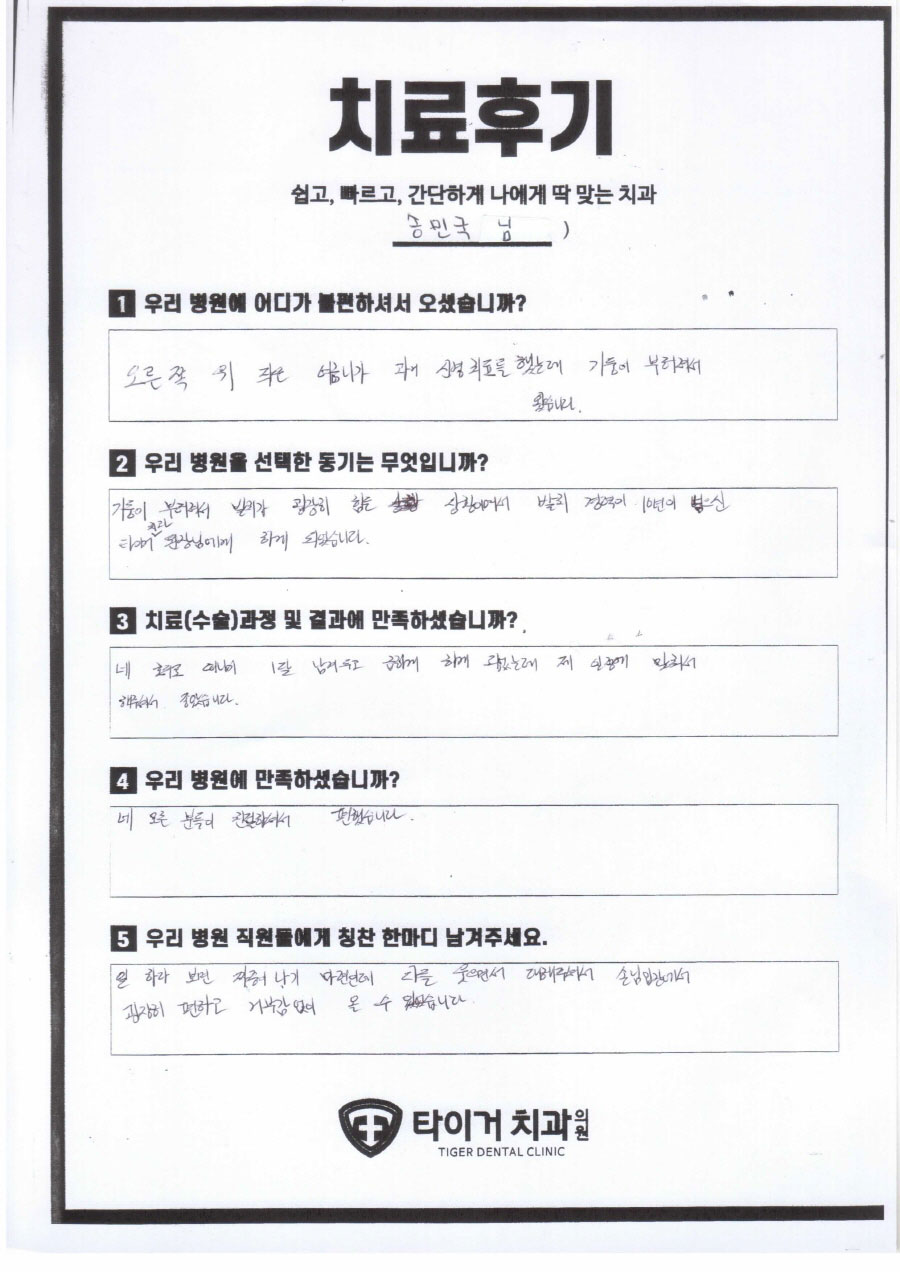 치료후기
쉽고, 빠르고, 간단하게 나에게 딱 맞는 치과
송민국 님 )
1 우리 병원에 어디가 불편하셔서 오셨습니까?
오른쪽 위 작은 어금니가 과거 신경치료를 했는데 기둥이 부러져서
왔습니다.
2 우리 병원을 선택한 동기는 무엇입니까?
기둥이 부러져서 발치가 굉장히 힘든 상황에서 발치 경력이 10년이 넘으신
치과
타이거 원장님에게 하게 되었습니다.
3 치료(수술)과정 및 결과에 만족하셨습니까?
네 1달 남겨두고 급하게 하게 되었는데 제 맞춰서
해주셔서 좋았습니다.
4 우리 병원에 만족하셨습니까?
네 모든 분들이 친절하셔서 편했습니다.
5 우리 병원 직원들에게 칭찬 한마디 남겨주세요.
일 하다 보면 짜증이 나기 마련인데 다들 웃으면서 대해주셔서 손님입장에서
굉장히 편하고 거부감 없이 올 수 있었습니다.
타이거 치과의원
TIGER DENTAL CLINIC